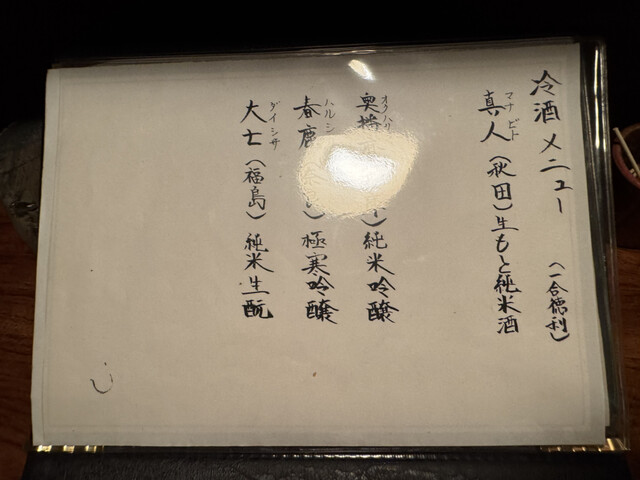 冷酒メニュー (一合徳利)
マナビト
真人(秋田)生もと純米酒
オクハリ
奥播 )純米吟醸
ハルシ
春鹿 )極寒吟醸
ダイシチ
大七(福島)純米生酛